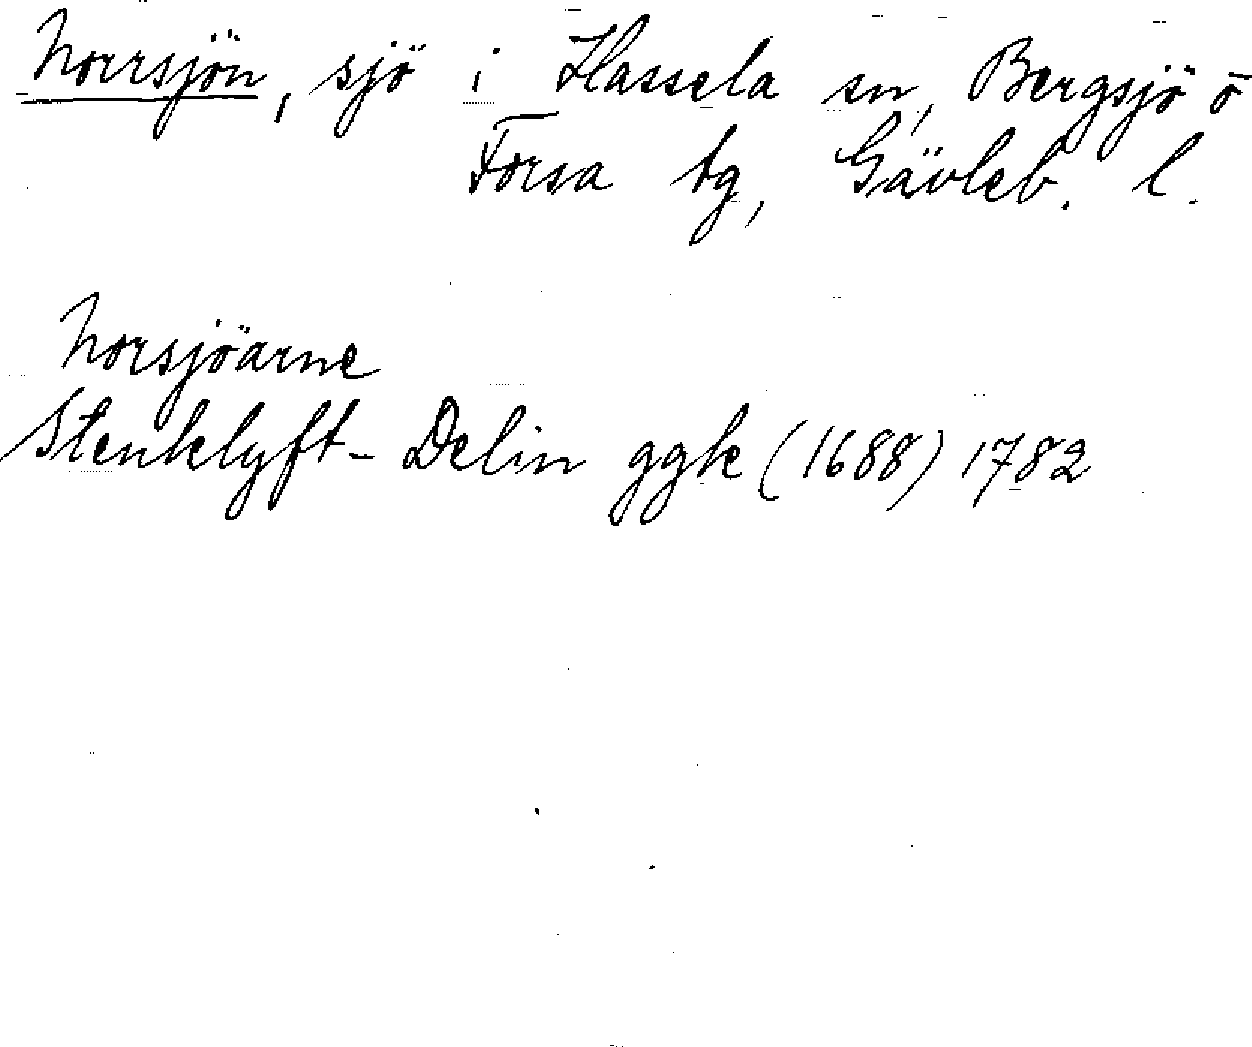 Norrsjön, sjö i Hassela sn, Bergsjö o
Forsa tg, Gävleb. l.
Norsjöarne
Stenklyft-Delin ggk (1688) 1782